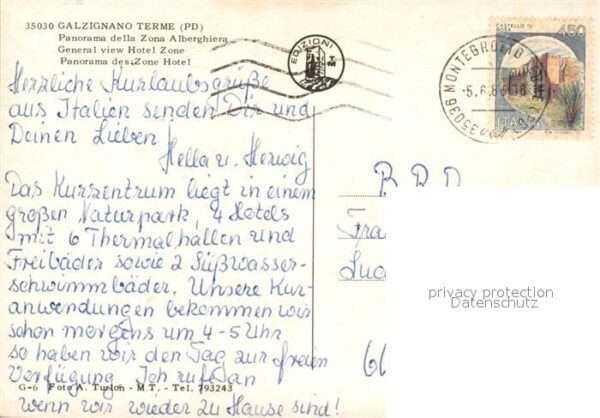 35030 GALZIGNANO TERME (PD)
Panorama della Zona Alberghiera
General view Hotel Zone
Panorama des Zone Hotel
EDIZIONI
TM
35036 MONTEGROTTO
-5.6.86-18
CASTELLO
450
ITALIA
Herzliche Kurlaubsgrüße
aus Italien senden Dir und
Deinen Lieben
Hella u. Herwig
Das Kurzentrum liegt in einem
großen Naturpark, 4 Hotels
mit 6 Thermalhallen und
Freibäder sowie 2 Süßwasser-
schwimmbäder. Unsere Kur-
anwendungen bekommen wir
schon morgens um 4-5 Uhr
so haben wir den Tag zur freien
Verfügung. Ich rufe an
wenn wir wieder zu Hause sind!
G-6 Foto A. Turlon - M.T. - Tel. 793243
Fra
66
privacy protection
Datenschutz